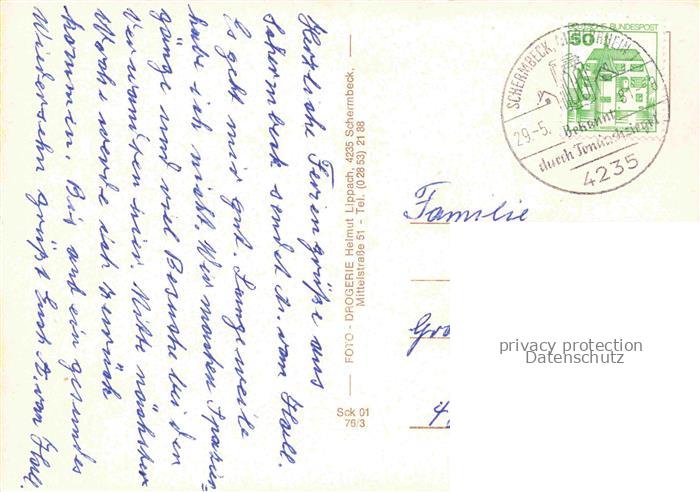 Herzliche Feriengrüße aus
Schermbeck sendet A. van Hall.
Es geht mir gut. Langeweile
habe ich nicht. Wir machen Spazier=
gänge und viel Besuche bei den
Verwandten hier. Mitte nächster
Woche werde ich zurück
kommen. Bis auf ein gesundes
Wiedersehn grüßt Euch A. van Hall.
FOTO - DROGERIE Helmut Lippach, 4235 Schermbeck,
Mittelstraße 51 - Tel. (0 28 53) 21 88
Sck 01
76/3
DEUTSCHE BUNDESPOST
50
SCHERMBECK, NIEDERRHEIN
29.-5.
Bekannt
durch Tondachziegel
4235
Familie
Gro
4
privacy protection
Datenschutz